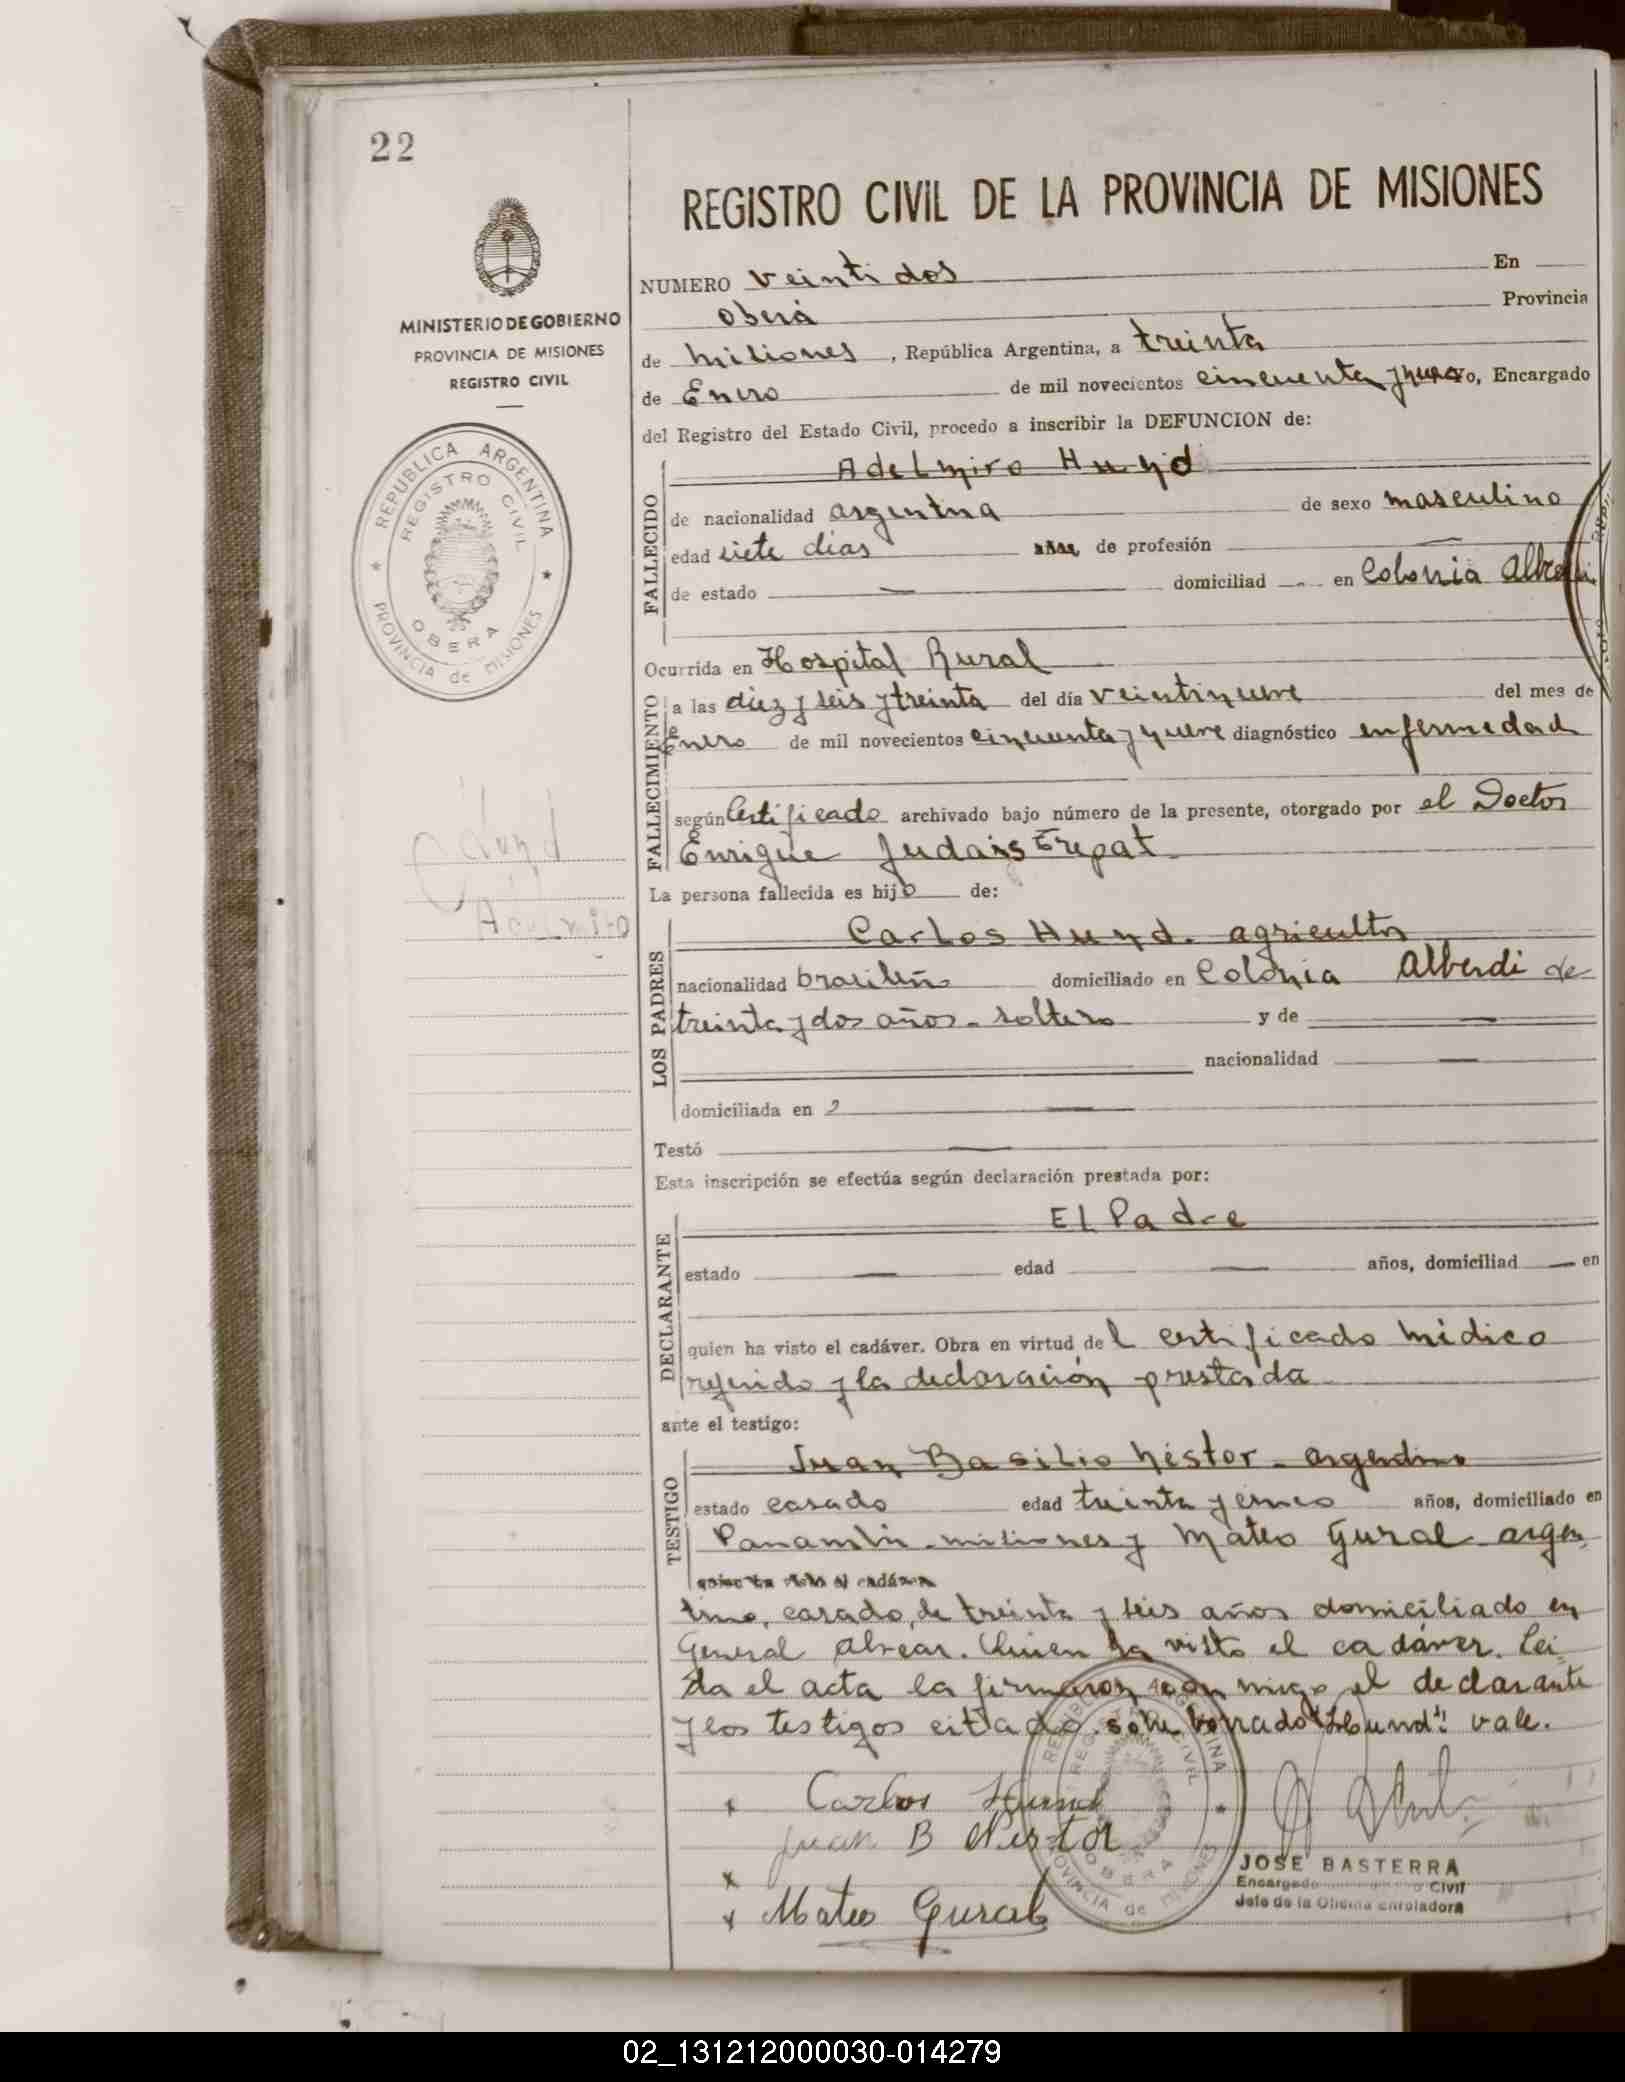 22
REGISTRO CIVIL DE LA PROVINCIA DE MISIONES
MINISTERIO DE GOBIERNO
PROVINCIA DE MISIONES
REGISTRO CIVIL
REPUBLICA ARGENTINA
REGISTRO CIVIL
OBERA
PROVINCIA de MISIONES
NUMERO veintidos En
Oberá Provincia
de Misiones , República Argentina, a treinta
de Enero de mil novecientos cincuenta y nueve yo, Encargado
del Registro del Estado Civil, procedo a inscribir la DEFUNCION de:
FALLECIDO
Adelmiro Hund
de nacionalidad argentina de sexo masculino
edad siete dias años, de profesión —
de estado — domiciliad — en Colonia Alberdi.
Ocurrida en Hospital Rural
FALLECIMIENTO
a las diez y seis y treinta del día veintinueve del mes de
Enero de mil novecientos cincuenta y nueve diagnóstico enfermedad
según Certificado archivado bajo número de la presente, otorgado por el Doctor
Enrique Trepat
La persona fallecida es hijo de:
Hund
Adelmiro
LOS PADRES
Carlos Hund. agricultor
nacionalidad brasileño domiciliado en Colonia Alberdi de
treinta y dos años - soltero y de —
nacionalidad —
domiciliada en —
Testó —
Esta inscripción se efectúa según declaración prestada por:
DECLARANTE
El Padre
estado — edad — años, domiciliad — en
quien ha visto el cadáver. Obra en virtud del certificado médico
referido y la declaración prestada
ante el testigo:
TESTIGO
Juan Basilio Néstor - argentino
estado casado edad treinta y cinco años, domiciliado en
Panambí - misiones y Mateo Gural argen
quien ha visto el cadáver
tino, casado, de treinta y seis años domiciliado en
General Alvear. Quien ha visto el cadáver. Leí-
da el acta la firmaron con migo el declarante
y los testigos citado. sobre borrado "Hund": vale.
Carlos Hund
Juan B Nestor
Mateo Gural
REPUBLICA ARGENTINA
REGISTRO CIVIL
OBERA
PROVINCIA de MISIONES
JOSE BASTERRA
Encargado Civil
Jefe de la Oficina Enroladora
02_131212000030-014279